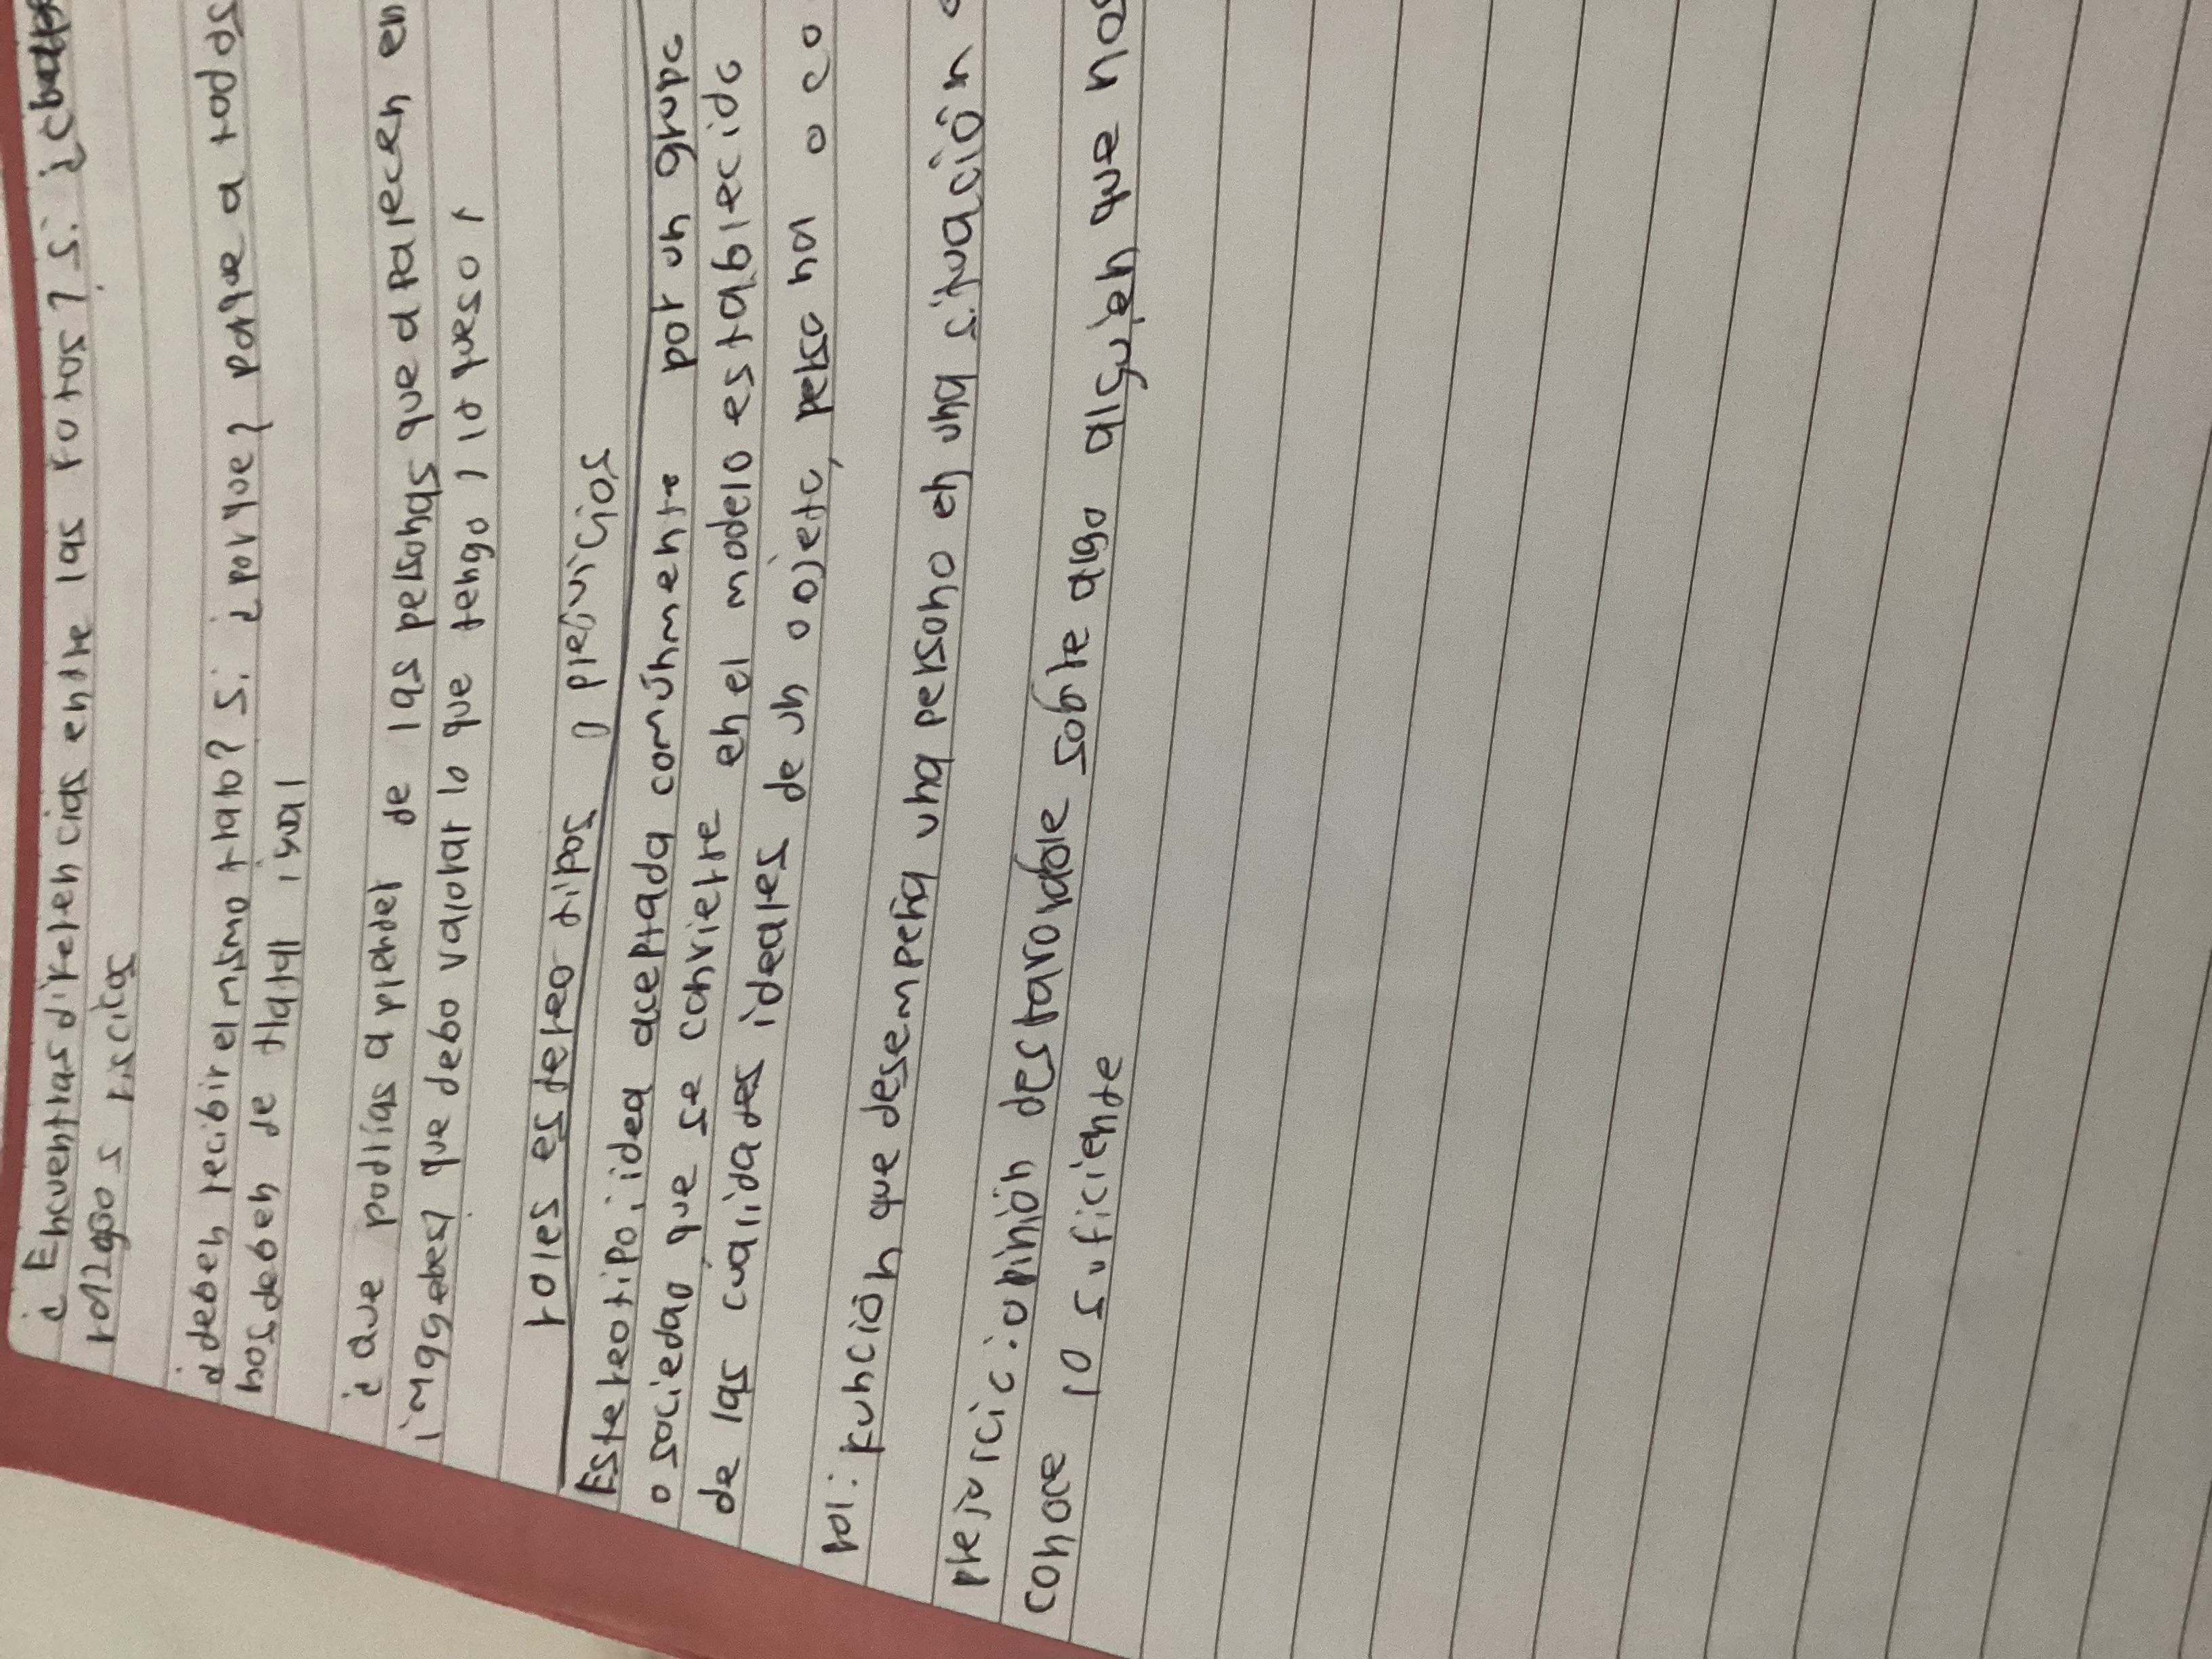 ¿Encuentras diferencias entre las fotos? si ¿
razgos fisicos
¿deben recibir el mismo trato? si ¿porque? porque a todos
nos deben de tratar igual
¿que podrías aprender de las personas que aparecen en
imagenes? que debo valorar lo que tengo y lo que so y
roles estereo tipos y prejuicios
Estereotipo: idea aceptada comúnmente por un grupo
o sociedad que se convierte en el modelo establecido
de las cualidades ideales de un objeto, persona o co
rol: función que desempeña una persona en una situación o
prejuicio: opinión desfavorable sobre algo alguien que no s
conoce lo suficiente